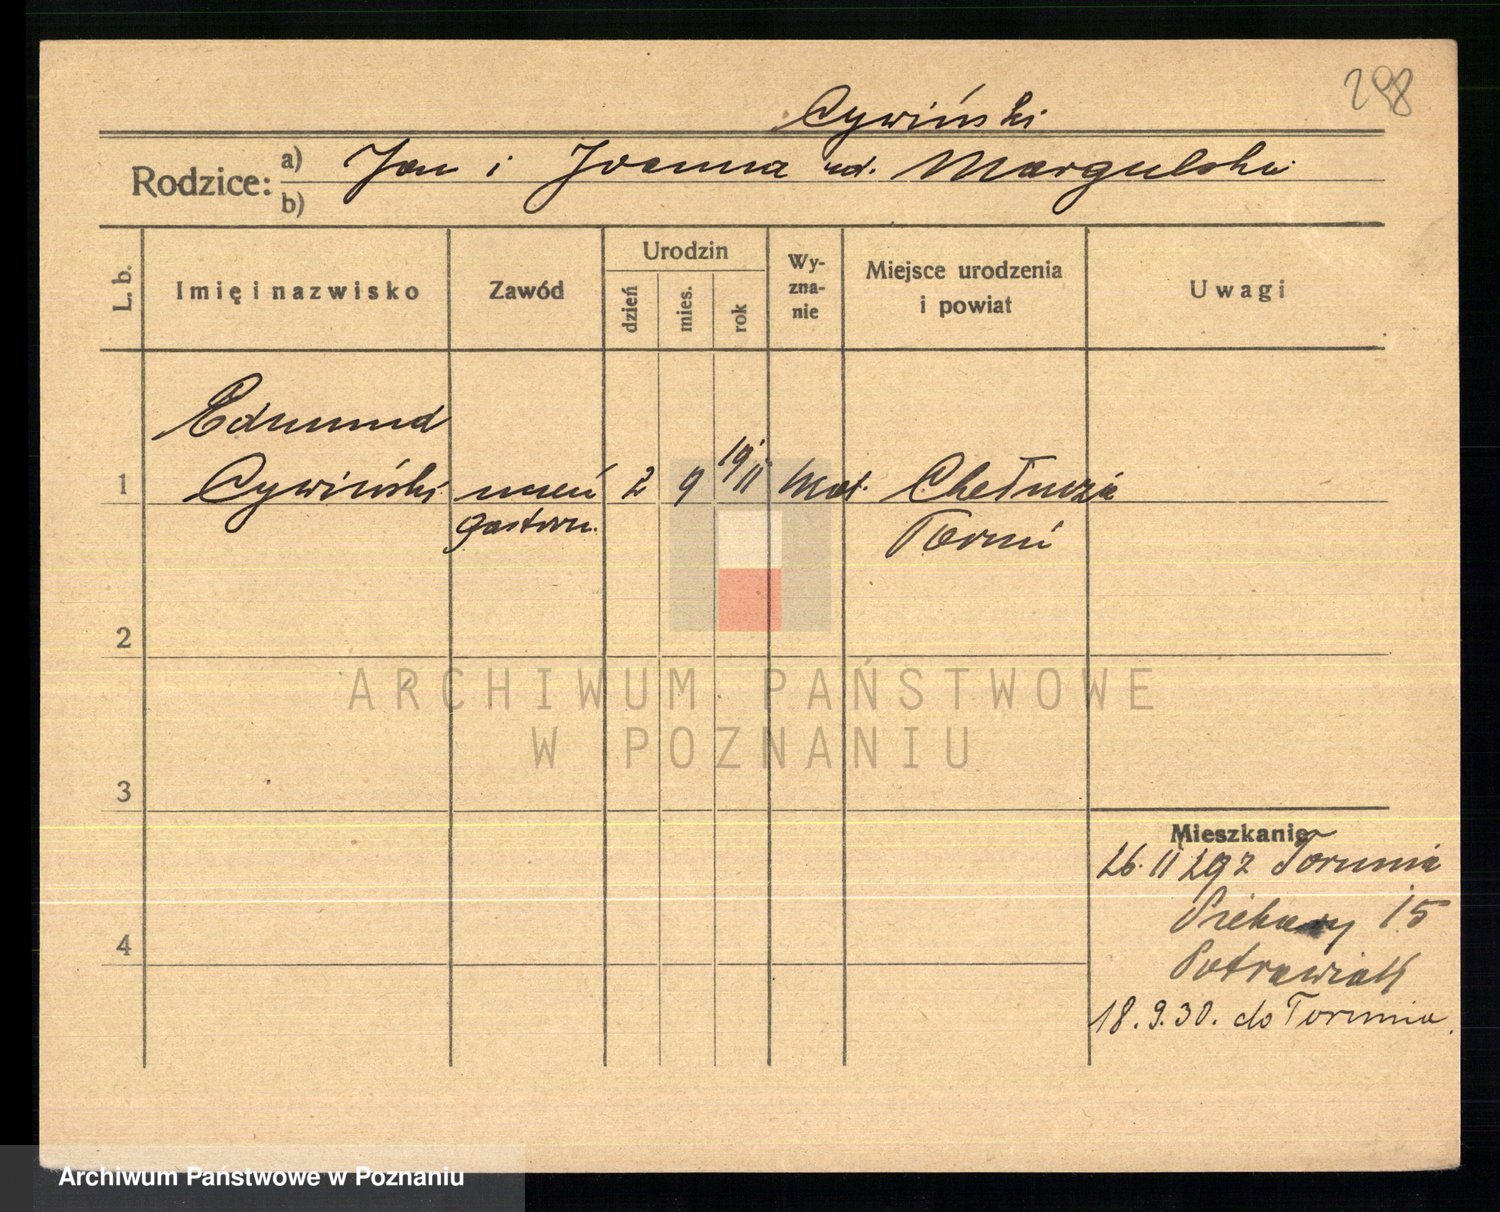 298
Cywiński
Rodzice: a) Jan i Joanna ud. Margulska
b)
L. b.
Imię i nazwisko
Zawód
Urodzin
dzień
mies.
rok
Wy-
zna-
nie
Miejsce urodzenia
i powiat
Uwagi
Edmund
1 Cywiński uczeń 2 9 1911 kat. Chełmża
gastron. Toruń
2
3
4
Mieszkanie
26. II 29 z Torunia
Piekary 15
Potrawiak
18. 9. 30. do Torunia.
ARCHIWUM PAŃSTWOWE
W POZNANIU
Archiwum Państwowe w Poznaniu